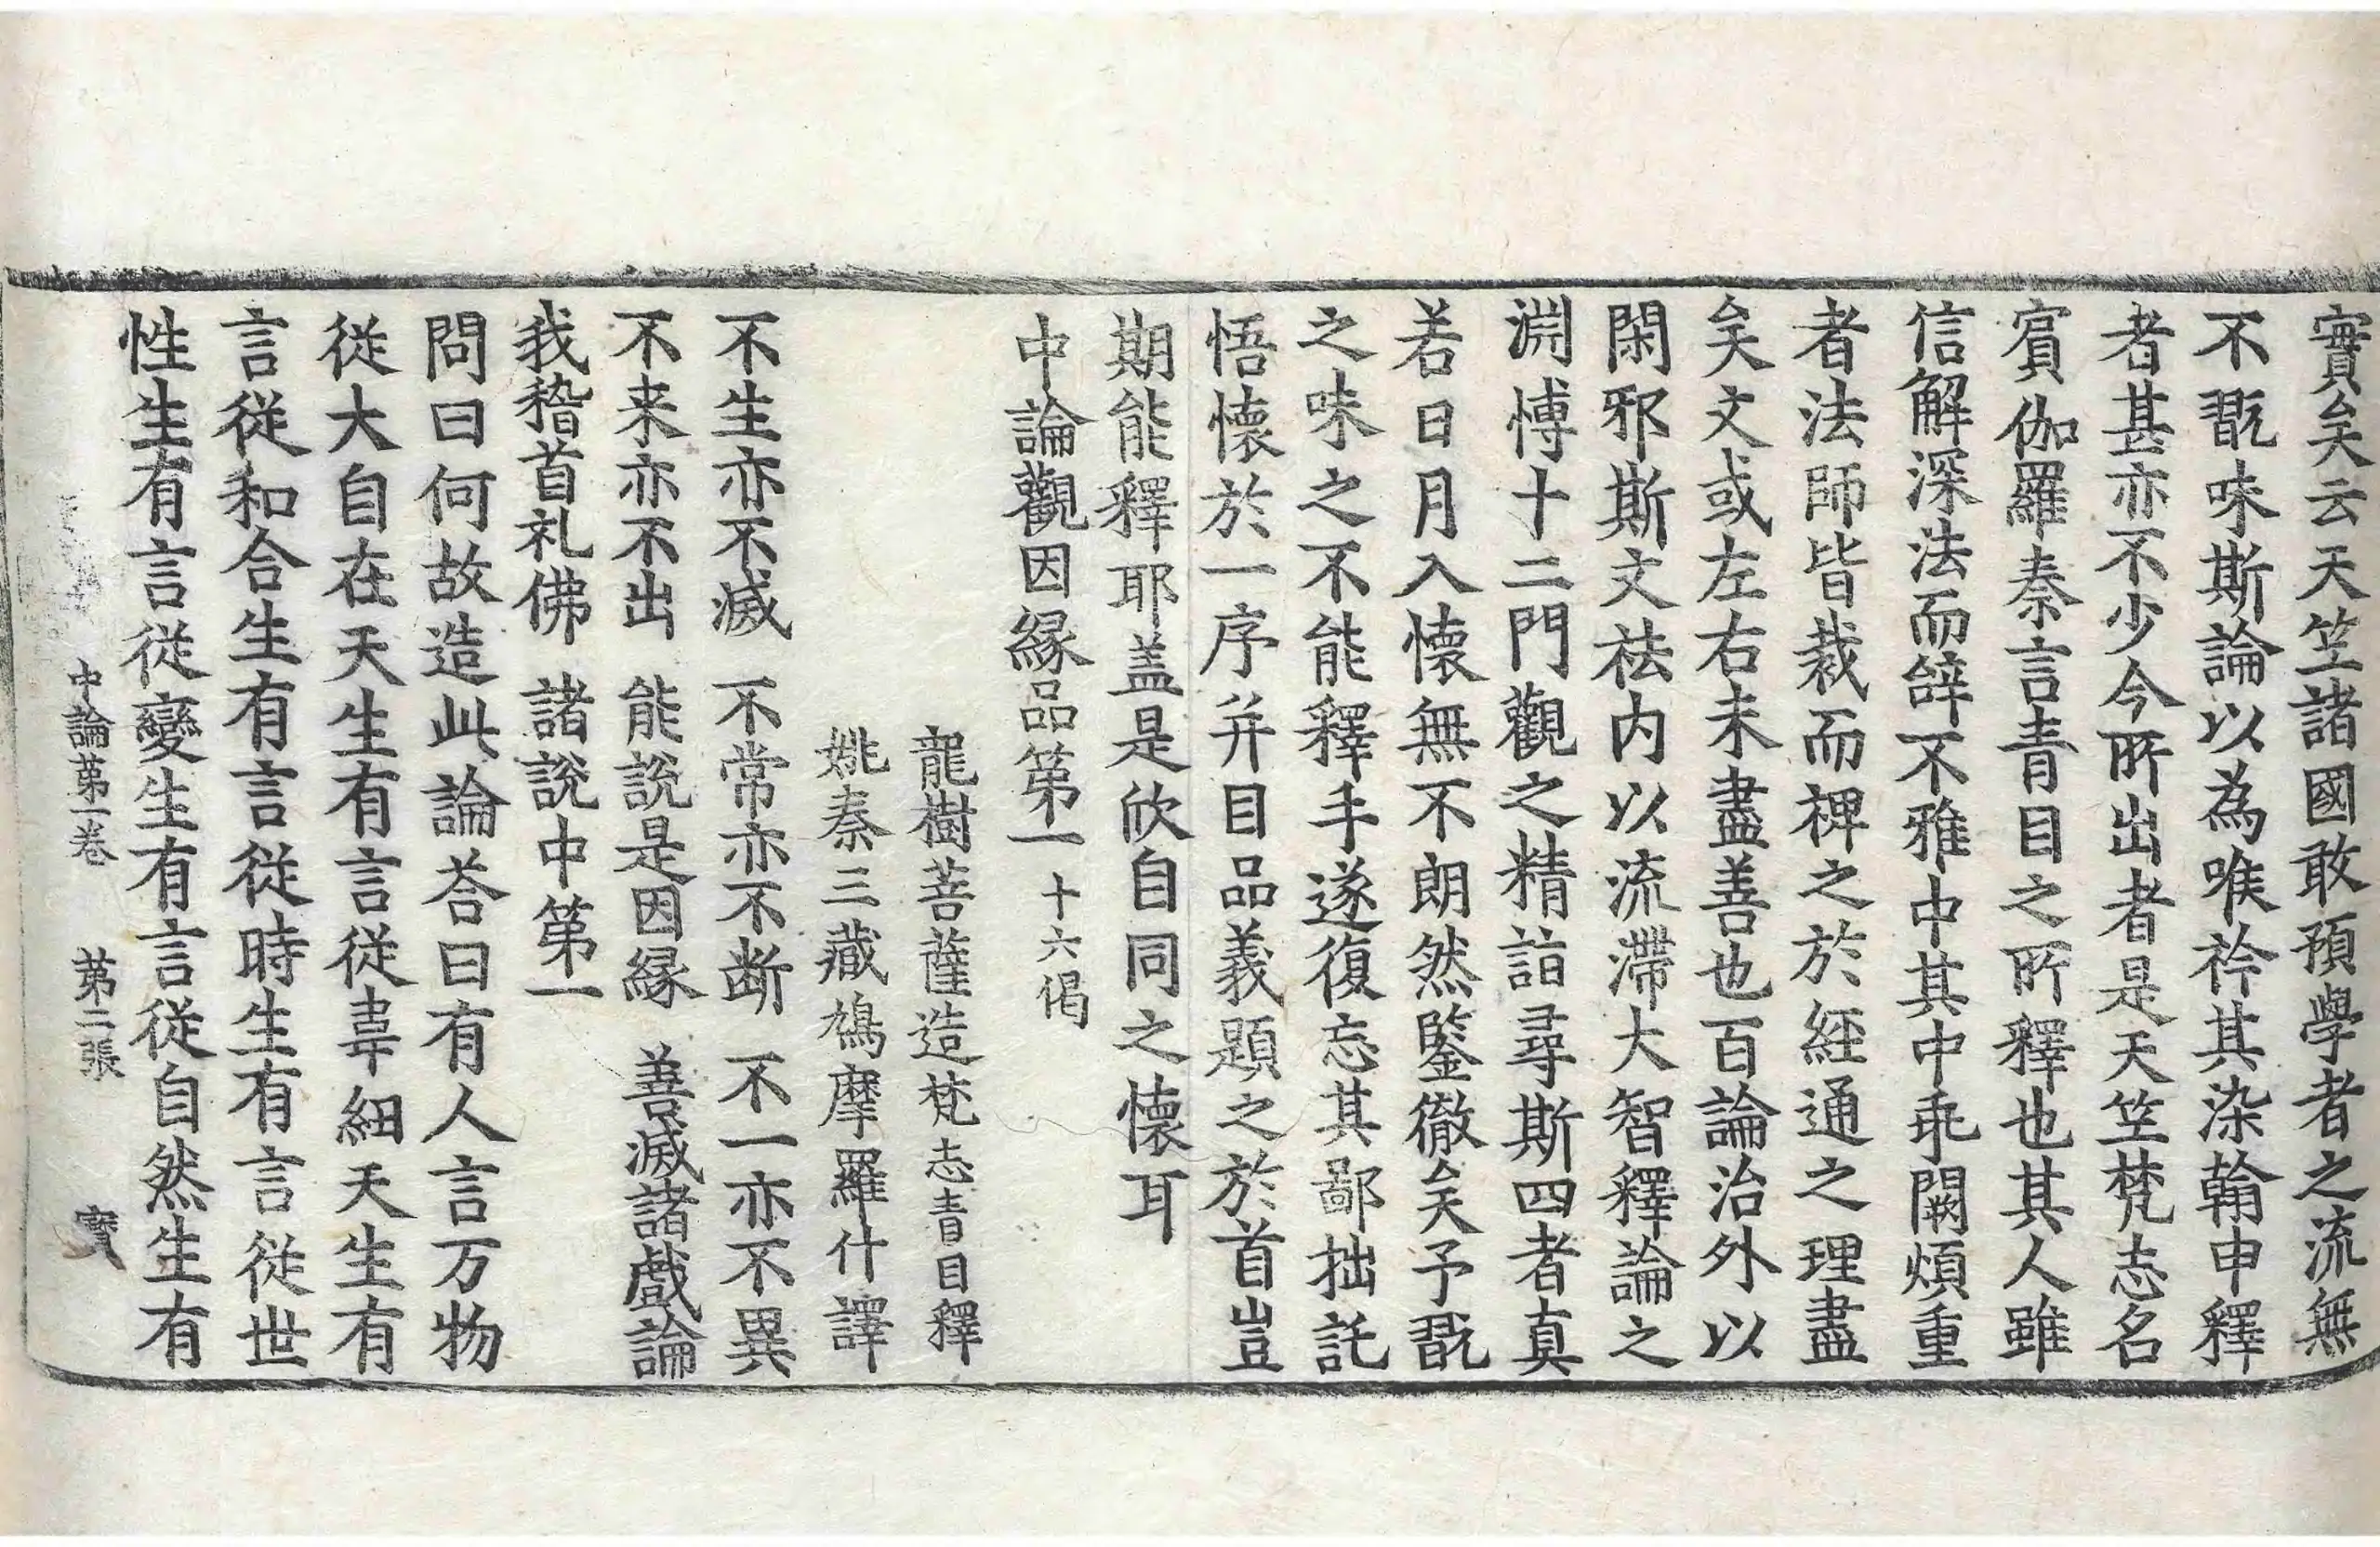 實矣云天竺諸國敢預學者之流無
不翫味斯論以為喉衿其染翰申釋
者甚亦不少今所出者是天竺梵志名
賓伽羅秦言青目之所釋也其人雖
信解深法而辝不雅中其中乖闕煩重
者法師皆裁而裨之於經通之理盡
矣文或左右未盡善也百論治外以
閑邪斯文祛内以流滯大智釋論之
淵博十二門觀之精詣尋斯四者真
若日月入懷無不朗然鑒徹矣予翫
之味之不能釋手遂復忘其鄙拙託
悟懷於一序并目品義題之於首豈
期能釋耶盖是欣自同之懷耳
中論觀因縁品第一 十六偈
龍樹菩薩造梵志青目釋
姚秦三藏鳩摩羅什譯
不生亦不滅 不常亦不断 不一亦不異
不来亦不出 能說是因縁 善滅諸戲論
我稽首礼佛 諸說中第一
問曰何故造此論荅曰有人言万物
從大自在天生有言從韋紐天生有
言從和合生有言從時生有言從世
性生有言從變生有言從自然生有
中論第一卷 第二張 寳